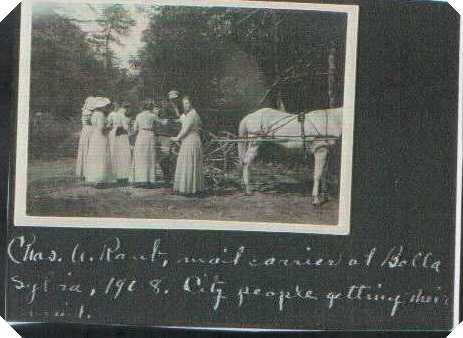 Chas. A. Rant, mail carrier at Bella
Sylvia, 1908. City people getting their
mail.